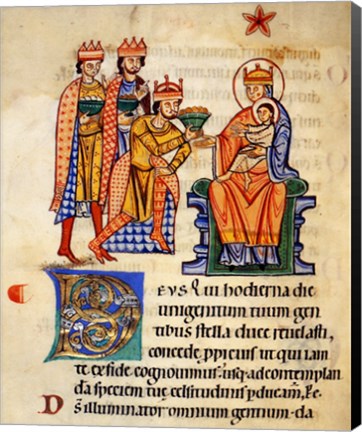 DEUS QUI hodierna die
unigenitum tuum gen
tibus stella duce reuelasti,
concede ppicius ut qui iam
te ex fide cognouimus. usq. ad contemplan
da speciem tue celsitudinis pducam,
D s illuminator omnium gentium. da